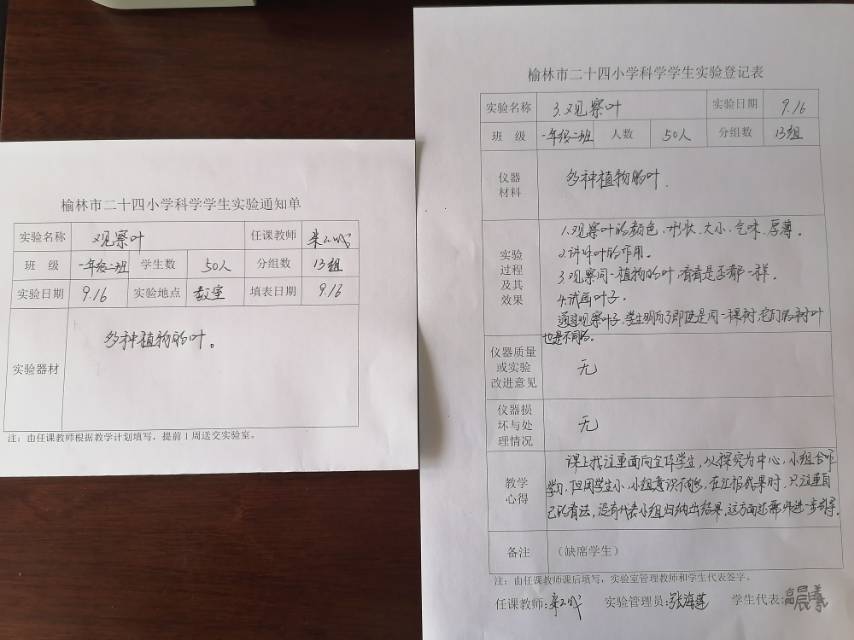 榆林市二十四小学科学学生实验通知单
实验名称 观察叶 任课教师
班 级 一年级二班 学生数 50人 分组数 13组
实验日期 9.16 实验地点 教室 填表日期 9.16
实验器材 多种植物的叶。
注：由任课教师根据教学计划填写，提前1周送交实验室。
榆林市二十四小学科学学生实验登记表
实验名称 3.观察叶 实验日期 9.16
班 级 一年级二班 人数 50人 分组数 13组
仪器材料 多种植物的叶.
实验过程及其效果
1.观察叶的颜色、形状、大小、气味、厚薄。
2.讲解叶的作用。
3.观察同一植物的叶,看看是否都一样。
4.试画叶子.
通过观察叶子,学生明白了即使是同一棵树,它们的树叶
也是不同的。
仪器质量或实验改进意见 无
仪器损坏与处理情况 无
教学心得
课上我注重面向全体学生,以探究为中心,小组合作
学习,但因学生小,小组意识不够,在汇报成果时,只注重自
己的看法,没有代表小组归纳出结果,这方面还需进一步引导。
备注 (缺席学生)
注：由任课教师课后填写，实验室管理教师和学生代表签字。
任课教师: 实验管理员:张海莲 学生代表:高晨曦